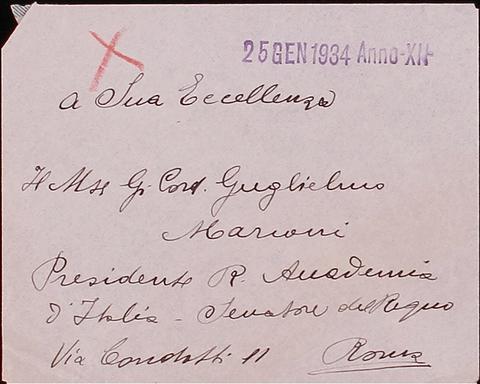 25 GEN 1934 Anno-XII
a Sua Eccellenza
Il Mse G. Cord. Guglielmo
Marconi
Presidente R. Accademia
d'Italia - Senatore del Regno
Via Condotti 11 Roma